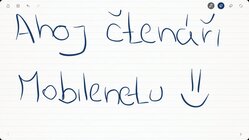 Ahoj čtenáři
Mobilenetu :)